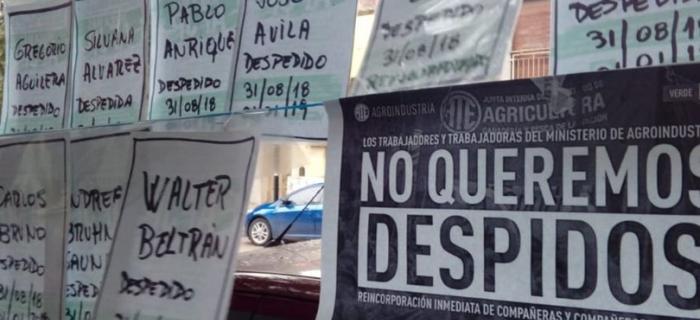 GREGORIO
AGUILERA
DESPEDIDO
31/08/18
SILVANA
ALVAREZ
DESPEDIDA
31/08/18
PABLO
ANRIQUE
DESPEDIDO
31/08/18
JOSE
AVILA
DESPEDIDO
31/08/18
DESPEDIDO
31/08/18
DESPEDIDO
31/08/18
31/08/
CARLOS
BRUNO
DESPEDIDO
31/08/18
ANDREA
BRUHN
DESPEDIDO
WALTER
BELTRÁN
DESPEDIDO
ATE AGROINDUSTRIA
ATE
JUNTA INTERNA DE
AGRICULTURA
VERDE
LOS TRABAJADORES Y TRABAJADORAS DEL MINISTERIO DE AGROINDU
NO QUEREMOS
DESPIDOS
REINCORPORACIÓN INMEDIATA DE COMPAÑERAS Y COMPAÑEROS